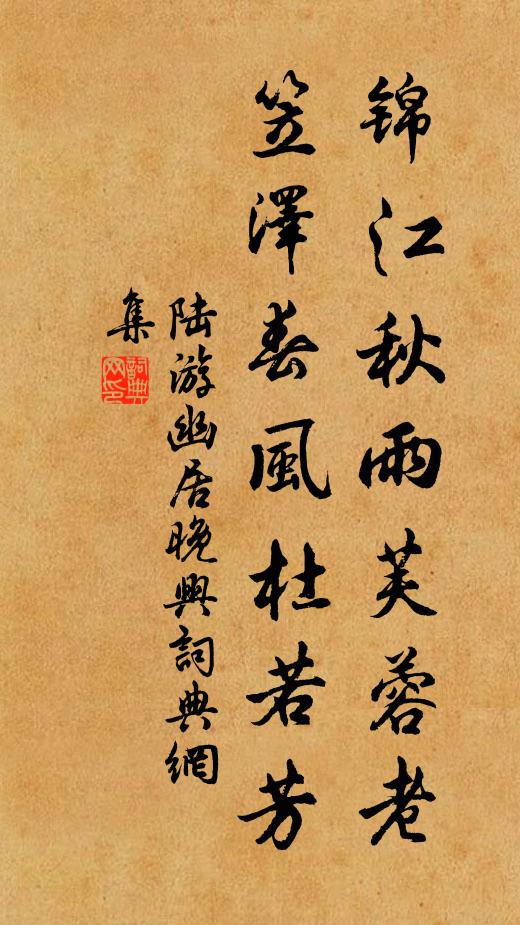 锦江秋雨芙蓉老
笠澤春風杜若芳
陆游幽居晚興詞典網
集
詞典网印